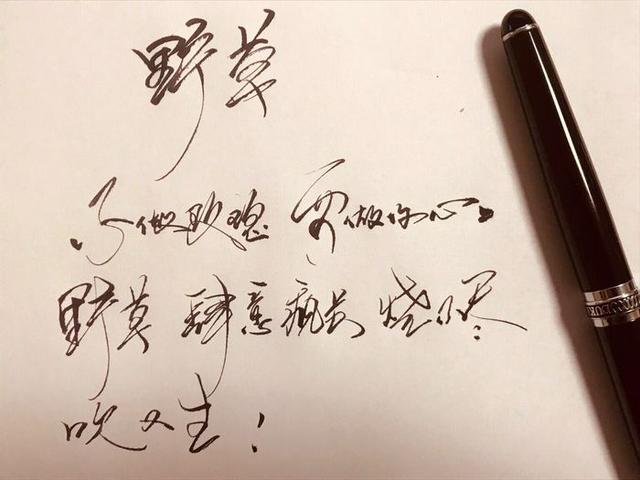 野草
不做玫瑰 要做你心上
野草 肆意疯长 烧不尽
吹又生！